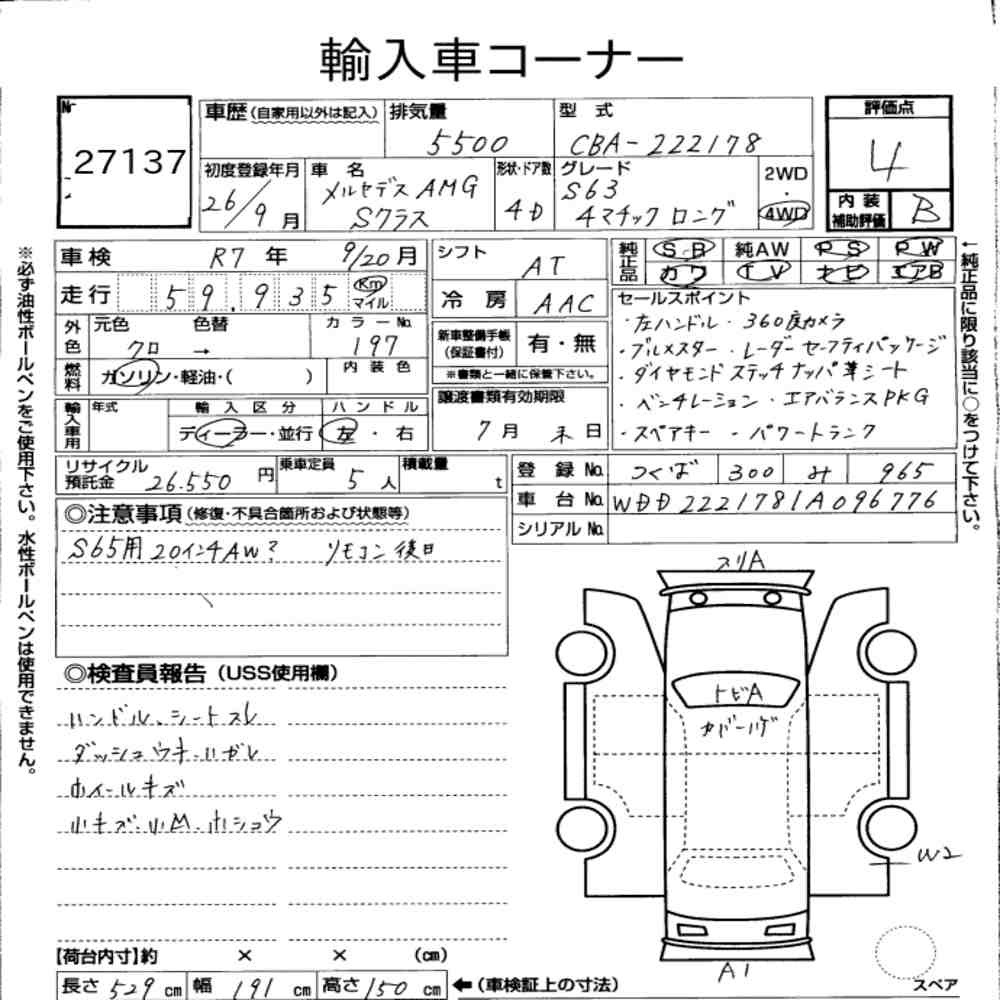 輸入車コーナー
№ 27137
車歴(自家用以外は記入) 排気量 5500 型式 CBA-222178
評価点 4
初度登録年月 26/9月 車名 メルセデスAMG Sクラス 形状・ドア数 4D グレード S63 4マチックロング 2WD・4WD
内装補助評価 B
車検 R7年 9/20月 シフト AT
純正品 S・R 純AW P・S P・W カワ T V ナビ エアB
走行 59.935 Km マイル 冷房 AAC
外色 元色 クロ 色替 → カラーNo. 197
新車整備手帳(保証書付) 有・無
※書類と一緒に保管下さい。
燃料 ガソリン・軽油・( ) 内装色
譲渡書類有効期限 7月末日
輸入車用 年式 輸入区分 ディーラー・並行 ハンドル 左・右
セールスポイント
・左ハンドル ・360度カメラ
・ブルメスター ・レーダーセーフティパッケージ
・ダイヤモンドステッチナッパ革シート
・ベンチレーション ・エアバランスPKG
・スペアキー ・パワートランク
リサイクル預託金 26.550円 乗車定員 5人 積載量 t
登録No. つくば 300 み 965
車台No. WDD2221781A096776
シリアルNo.
◎注意事項(修復・不具合箇所および状態等)
S65用20インチAW? リモコン後日
◎検査員報告(USS使用欄)
ハンドル、シートスレ
ダッシュウキ・ハガレ
ホイールキズ
小キズ・小凹・ホショウ
スリA
トビA
カバーハゲ
W2
A1
スペア
【荷台内寸】約 × × (cm)
長さ 529 cm 幅 191 cm 高さ 150 cm ←(車検証上の寸法)
※必ず油性ボールペンをご使用下さい。水性ボールペンは使用できません。
←純正品に限り該当に○をつけて下さい。